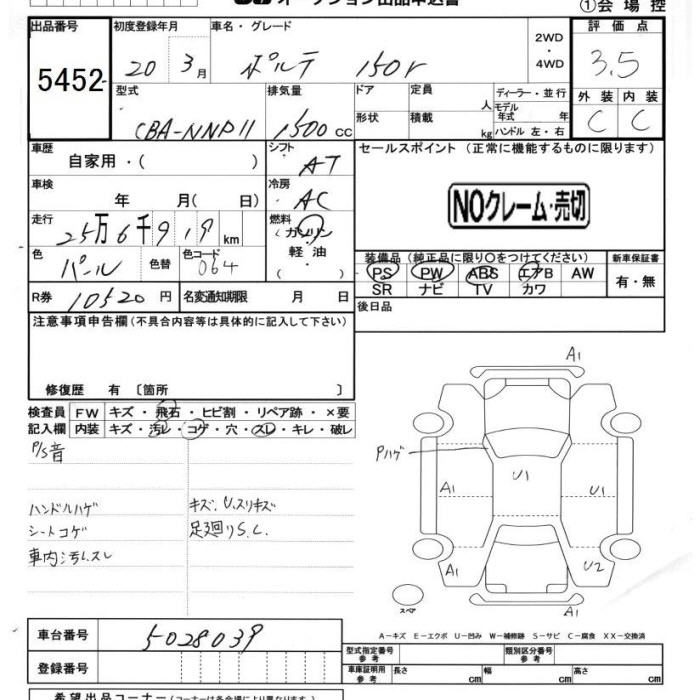 オークション出品申込書
①会場控
出品番号
5452
初度登録年月
20年 3月
車名・グレード
ポルテ 150r
2WD
・
4WD
評価点
3.5
外装 内装
C C
型式
CBA-NNP11
排気量
1500 cc
ドア
形状
定員
人
積載
kg
ディーラー・並行
モデル
年式 年
ハンドル 左・右
車歴
自家用・( )
シフト
AT
セールスポイント (正常に機能するものに限ります)
NOクレーム・売切
車検
年 月( 日)
冷房
AC
走行
25万6千919km
燃料
(ガソリン
軽油
・( )
色
パール
色替
色コード
064
装備品 (純正品に限り〇をつけてください)
PS PW ABS エアB AW
SR ナビ TV カワ
新車保証書
有・無
R券 10520円
名変通知期限 月 日
後日品
注意事項申告欄 (不具合内容等は具体的に記入して下さい)
修復歴 有 〔箇所 〕
検査員
記入欄
FW キズ・飛石・ヒビ割・リペア跡・×要
内装 キズ・汚レ・コゲ・穴・スレ・キレ・破レ
P/S音
ハンドルハゲ
シートコゲ
車内汚レスレ
キズ、U、スリキズ
足廻りS.C.
A1
Pハゲ
U1
A1
U1
A1
U2
A1
スペア
A-キズ E-エクボ U-凹み W-補修跡 S-サビ C-腐食 XX-交換済
車台番号
5028039
登録番号
型式指定番号
参考
類別区分番号
参考
車庫証明用
参考
長さ cm
幅 cm
高さ cm
希望出品コーナー